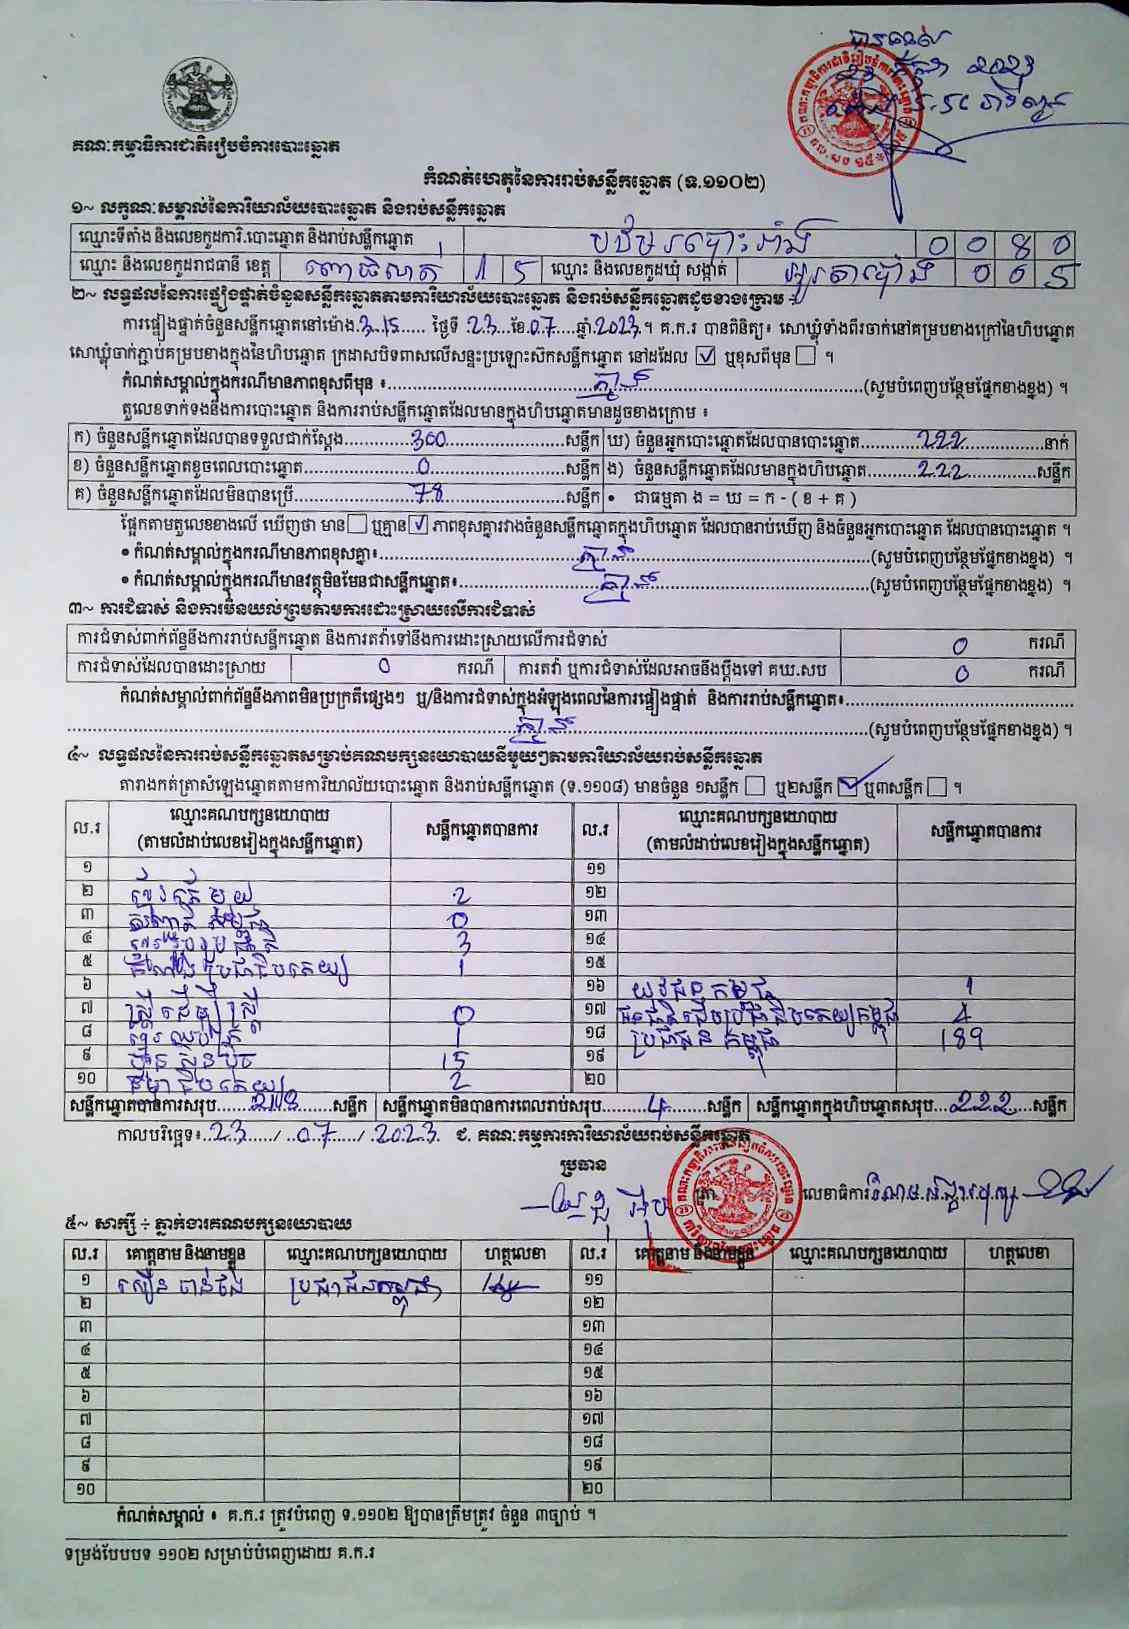 គណៈកម្មាធិការជាតិរៀបចំការបោះឆ្នោត
កំណត់ហេតុនៃការរាប់សន្លឹកឆ្នោត (ទ.១១០២)
១~ លក្ខណៈសម្គាល់នៃការិយាល័យបោះឆ្នោត និងរាប់សន្លឹកឆ្នោត
ឈ្មោះទីតាំង និងលេខកូដការិ.បោះឆ្នោត និងរាប់សន្លឹកឆ្នោត 0 0 8 0
ឈ្មោះ និងលេខកូដរាជធានី ខេត្ត ពោធិសាត់ 1 5 ឈ្មោះ និងលេខកូដឃុំ សង្កាត់ 0 0 5
២~ លទ្ធផលនៃការផ្ទៀងផ្ទាត់ចំនួនសន្លឹកឆ្នោតតាមការិយាល័យបោះឆ្នោត និងរាប់សន្លឹកឆ្នោតដូចខាងក្រោម ÷
ការផ្ទៀងផ្ទាត់ចំនួនសន្លឹកឆ្នោតនៅម៉ោង 3:15 ថ្ងៃទី 23 ខែ 07 ឆ្នាំ 2023 ។ គ.ក.រ បានពិនិត្យ៖ សោឃ្លុំទាំងពីរចាក់នៅគម្របខាងក្រៅនៃហិបឆ្នោត
សោឃ្លុំចាក់ភ្ជាប់គម្របខាងក្នុងនៃហិបឆ្នោត ក្រដាសបិទពាសលើសន្ទះប្រឡោះស៊កសន្លឹកឆ្នោត នៅដដែល ☑ ឬខុសពីមុន ☐ ។
កំណត់សម្គាល់ក្នុងករណីមានភាពខុសពីមុន ៖ គ្មាន (សូមបំពេញបន្ថែមផ្នែកខាងខ្នង) ។
តួលេខទាក់ទងនឹងការបោះឆ្នោត និងការរាប់សន្លឹកឆ្នោតដែលមានក្នុងហិបឆ្នោតមានដូចខាងក្រោម ៖
ក) ចំនួនសន្លឹកឆ្នោតដែលបានទទួលជាក់ស្តែង 300 សន្លឹក ឃ) ចំនួនអ្នកបោះឆ្នោតដែលបានបោះឆ្នោត 222 នាក់
ខ) ចំនួនសន្លឹកឆ្នោតខូចពេលបោះឆ្នោត 0 សន្លឹក ង) ចំនួនសន្លឹកឆ្នោតដែលមានក្នុងហិបឆ្នោត 222 សន្លឹក
គ) ចំនួនសន្លឹកឆ្នោតដែលមិនបានប្រើ 78 សន្លឹក • ជាធម្មតា ង = ឃ = ក - ( ខ + គ )
ផ្អែកតាមតួលេខខាងលើ ឃើញថា មាន ☐ ឬគ្មាន ☑ ភាពខុសគ្នារវាងចំនួនសន្លឹកឆ្នោតក្នុងហិបឆ្នោត ដែលបានរាប់ឃើញ និងចំនួនអ្នកបោះឆ្នោត ដែលបានបោះឆ្នោត ។
• កំណត់សម្គាល់ក្នុងករណីមានភាពខុសគ្នា៖ គ្មាន (សូមបំពេញបន្ថែមផ្នែកខាងខ្នង) ។
• កំណត់សម្គាល់ក្នុងករណីមានវត្ថុមិនមែនជាសន្លឹកឆ្នោត៖ គ្មាន (សូមបំពេញបន្ថែមផ្នែកខាងខ្នង) ។
៣~ ការជំទាស់ និងការមិនយល់ព្រមតាមការដោះស្រាយលើការជំទាស់
ការជំទាស់ពាក់ព័ន្ធនឹងការរាប់សន្លឹកឆ្នោត និងការតវ៉ាទៅនឹងការដោះស្រាយលើការជំទាស់ 0 ករណី
ការជំទាស់ដែលបានដោះស្រាយ 0 ករណី ការតវ៉ា ឬការជំទាស់ដែលអាចនឹងប្តឹងទៅ គឃ.សប 0 ករណី
កំណត់សម្គាល់ពាក់ព័ន្ធនឹងភាពមិនប្រក្រតីផ្សេងៗ ឬ/និងការជំទាស់ក្នុងអំឡុងពេលនៃការផ្ទៀងផ្ទាត់ និងការរាប់សន្លឹកឆ្នោត៖
គ្មាន (សូមបំពេញបន្ថែមផ្នែកខាងខ្នង) ។
៤~ លទ្ធផលនៃការរាប់សន្លឹកឆ្នោតសម្រាប់គណបក្សនយោបាយនីមួយៗតាមការិយាល័យរាប់សន្លឹកឆ្នោត
តារាងកត់ត្រាសំឡេងឆ្នោតតាមការិយាល័យបោះឆ្នោត និងរាប់សន្លឹកឆ្នោត (ទ.១១០៨) មានចំនួន ១សន្លឹក ☐ ឬ២សន្លឹក ☑ ឬ៣សន្លឹក ☐ ។
ល.រ ឈ្មោះគណបក្សនយោបាយ (តាមលំដាប់លេខរៀងក្នុងសន្លឹកឆ្នោត) សន្លឹកឆ្នោតបានការ ល.រ ឈ្មោះគណបក្សនយោបាយ (តាមលំដាប់លេខរៀងក្នុងសន្លឹកឆ្នោត) សន្លឹកឆ្នោតបានការ
១ ១១
២ 2 ១២
៣ 0 ១៣
៤ 3 ១៤
៥ 1 ១៥
៦ ១៦ យុវជនកម្ពុជា 1
៧ ស្ត្រីដើម្បីស្ត្រី 0 ១៧ 4
៨ 1 ១៨ ប្រជាជនកម្ពុជា 189
៩ 15 ១៩
១០ 2 ២០
សន្លឹកឆ្នោតបានការសរុប 218 សន្លឹក សន្លឹកឆ្នោតមិនបានការពេលរាប់សរុប 4 សន្លឹក សន្លឹកឆ្នោតក្នុងហិបឆ្នោតសរុប 222 សន្លឹក
កាលបរិច្ឆេទ៖ 23 / 07 / 2023 ជ. គណៈកម្មការការិយាល័យរាប់សន្លឹកឆ្នោត
ប្រធាន
លេខាធិការ
៥~ សាក្សី ÷ ភ្នាក់ងារគណបក្សនយោបាយ
ល.រ គោត្តនាម និងនាមខ្លួន ឈ្មោះគណបក្សនយោបាយ ហត្ថលេខា ល.រ គោត្តនាម និងនាមខ្លួន ឈ្មោះគណបក្សនយោបាយ ហត្ថលេខា
១ ប្រជាជនកម្ពុជា ១១
២ ១២
៣ ១៣
៤ ១៤
៥ ១៥
៦ ១៦
៧ ១៧
៨ ១៨
៩ ១៩
១០ ២០
កំណត់សម្គាល់ ៖ គ.ក.រ ត្រូវបំពេញ ទ.១១០២ ឱ្យបានត្រឹមត្រូវ ចំនួន ៣ច្បាប់ ។
ទម្រង់បែបបទ ១១០២ សម្រាប់បំពេញដោយ គ.ក.រ